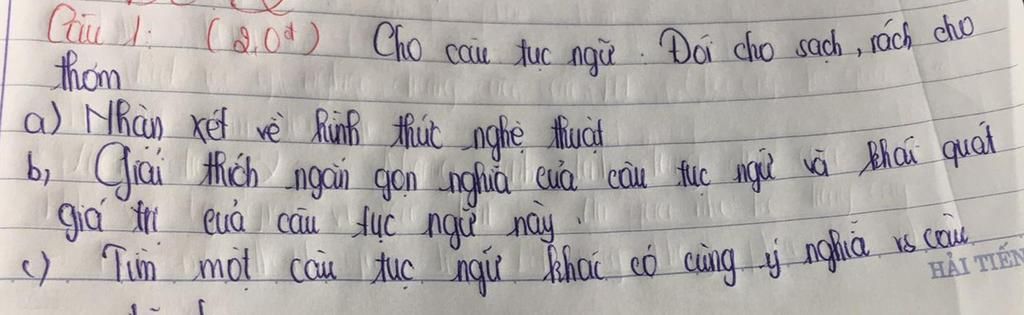 Câu 1: (2,0đ) Cho câu tục ngữ. Đói cho sạch, rách cho
thơm
a) Nhận xét về hình thức nghệ thuật
b, Giải thích ngắn gọn nghĩa của câu tục ngữ và khái quát
giá trị của câu tục ngữ này.
c) Tìm một câu tục ngữ khác có cùng ý nghĩa vs câu
HẢI TIẾN